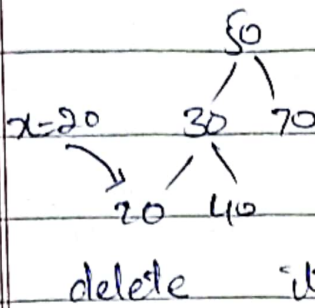 50
x=20 30 70
20 40
delete